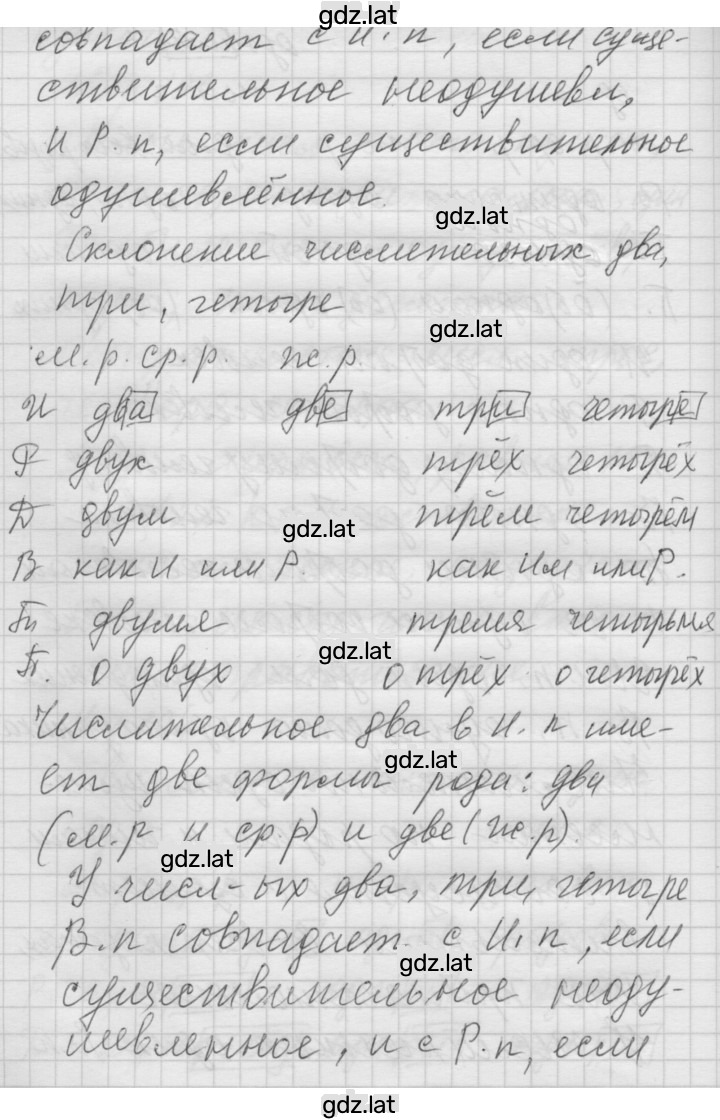 gdz.lat
совпадает с И.п, если суще-
ствительное неодушевл,
и Р.п, если существительное
одушевлённое.
gdz.lat
Склонение числительных два,
три, четыре
gdz.lat
м.р. ср.р. ж.р.
И два две три четыре
Р двух трёх четырёх
Д двум трём четырём
gdz.lat
В как И или Р. как Им или Р.
двумя тремя четырьмя
gdz.lat
П. о двух о трёх о четырёх
Числительное два в И.п име-
ет две формы рода: два
gdz.lat
(м.р и ср.р) и две (ж.р).
gdz.lat
У числ-ых два, три, четыре
В.п совпадает с И.п, если
gdz.lat
существительное неоду-
шевленное, и с Р.п, если
gdz.lat